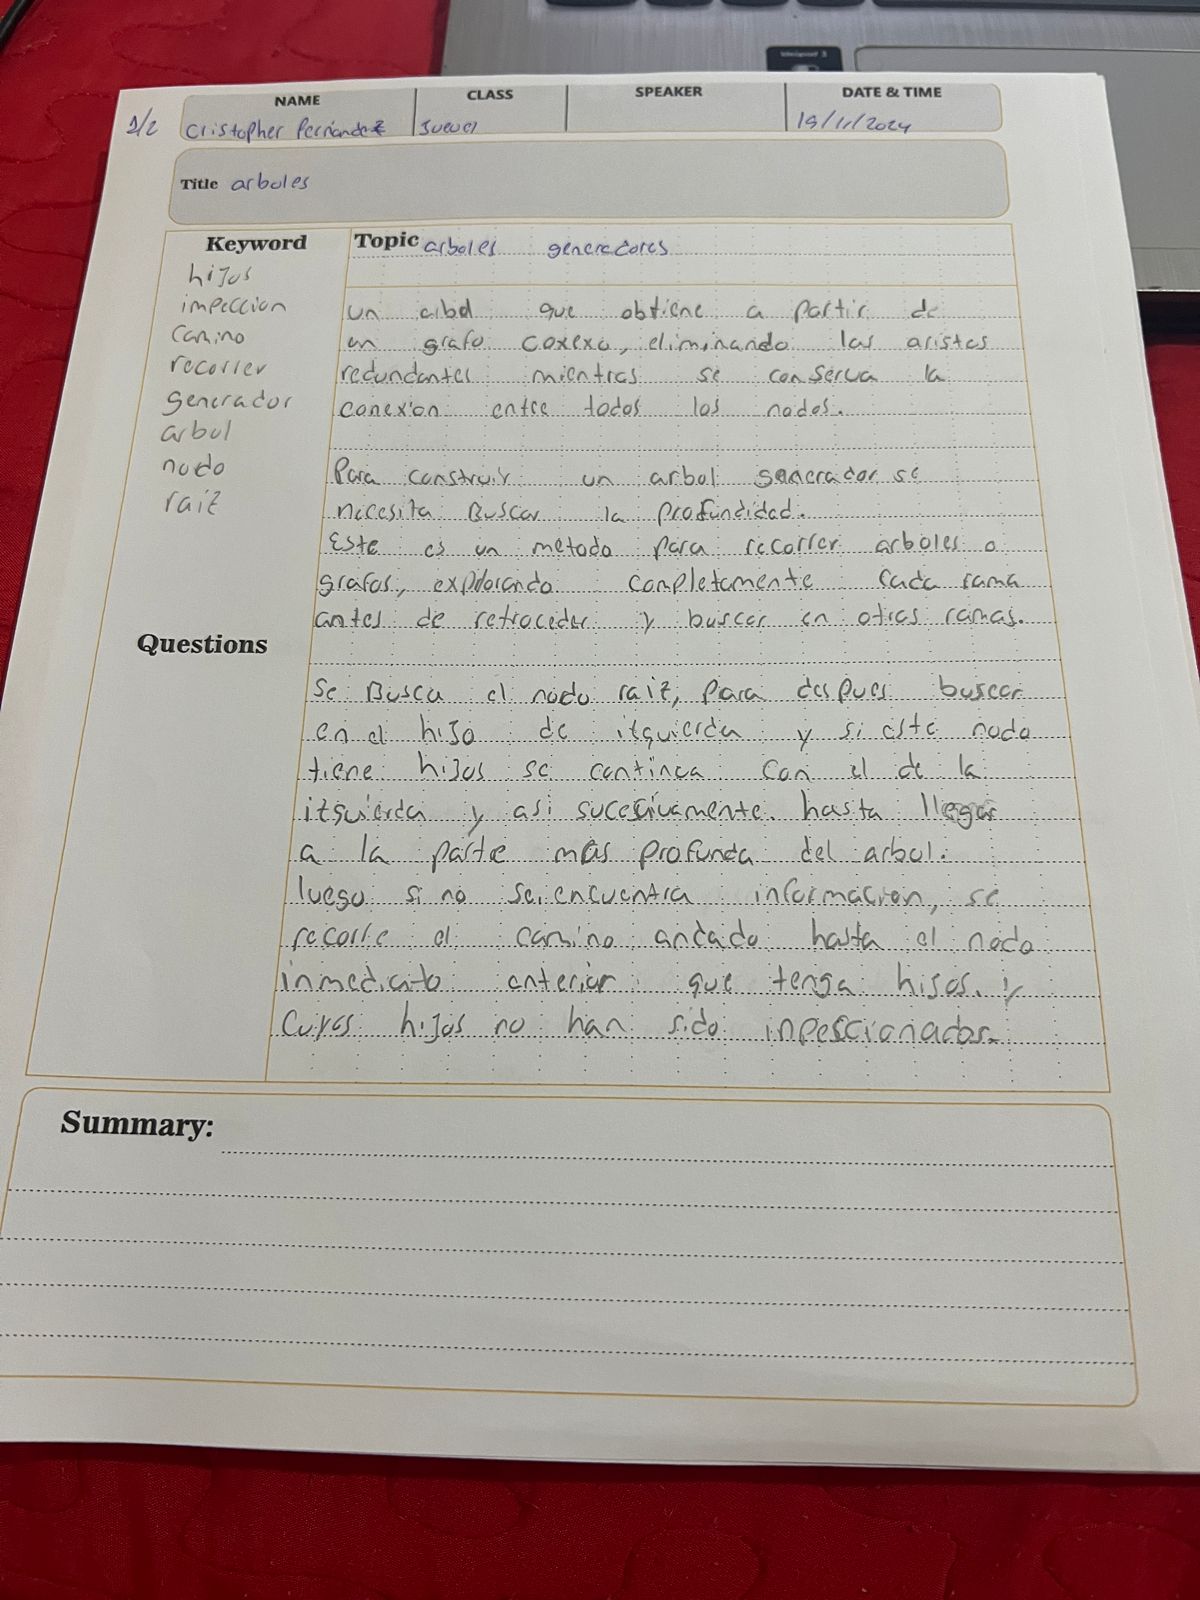 NAME CLASS SPEAKER DATE & TIME
1/2 Cristopher Fernandez Jueves 19/11/2024
Title arboles
Keyword
hijos
impeccion
Camino
recorrer
generador
arbol
nodo
raiz
Questions
Topic arboles generadores
un arbol que obtiene a partir de
un grafo coxexo, eliminando las aristas
redundantes mientras se conserva la
conexion entre todos los nodos.
Para construir un arbol generador se
necesita Buscar la profundidad.
Este es un metodo para recorrer arboles o
grafos, explorando completamente cada rama
antes de retroceder y buscar en otras ramas.
Se Busca el nodo raiz, para despues buscar
en el hijo de izquierda y si este nodo
tiene hijos se continua con el de la
izquierda y asi sucesivamente hasta llegar
a la parte mas profunda del arbol.
luego si no se encuentra informacion, se
recorre el camino andado hasta el nodo
inmediato anterior que tenga hijos y
Cuyos hijos no han sido inpeccionados.
Summary: